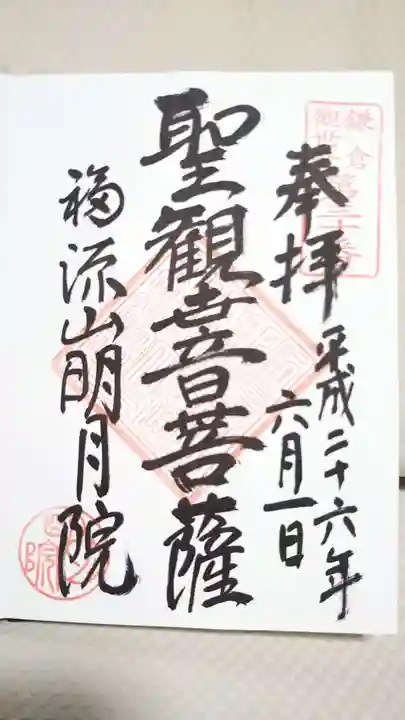 鎌倉
観世音
第三十番
奉拝
平成二十六年
六月一日
聖観世音菩薩
福源山明月院